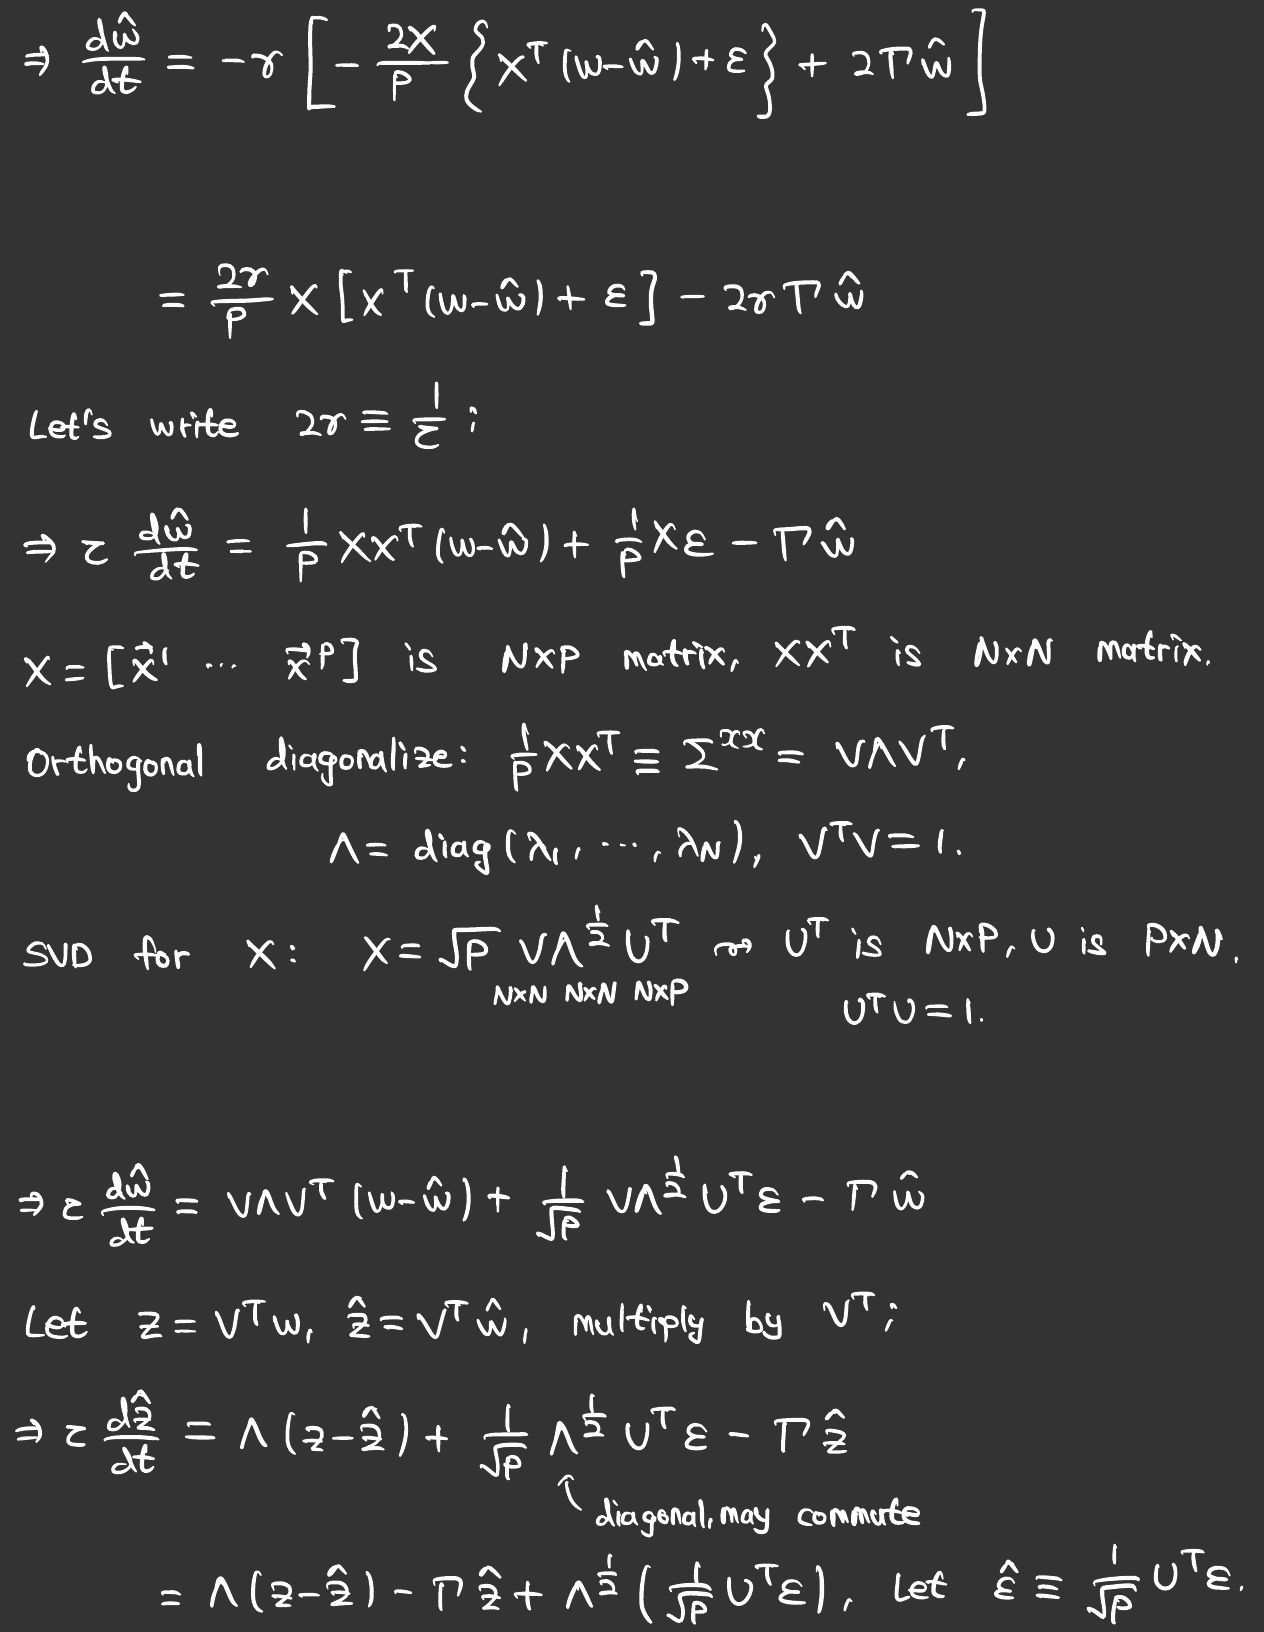 ⇒ dŵ/dt = -r [ - 2X/P { X^T (w-ŵ) + ε } + 2Γŵ ]
= 2r/P X [ X^T (w-ŵ) + ε ] - 2rΓŵ
Let's write 2r ≡ 1/τ ;
⇒ τ dŵ/dt = 1/P XX^T (w-ŵ) + 1/P Xε - Γŵ
X = [x⃗^1 ... x⃗^P] is N×P matrix, XX^T is N×N matrix.
Orthogonal diagonalize: 1/P XX^T ≡ Σ^xx = VΛV^T,
Λ = diag(λ_1, ..., λ_N), V^T V = 1.
SVD for X: X = √P VΛ^(1/2) U^T ⇝ U^T is N×P, U is P×N.
N×N N×N N×P
U^T U = 1.
⇒ τ dŵ/dt = VΛV^T (w-ŵ) + 1/√P VΛ^(1/2) U^T ε - Γŵ
Let z = V^T w, ẑ = V^T ŵ, multiply by V^T ;
⇒ τ dẑ/dt = Λ(z-ẑ) + 1/√P Λ^(1/2) U^T ε - Γẑ
↑ diagonal, may commute
= Λ(z-ẑ) - Γẑ + Λ^(1/2) ( 1/√P U^T ε ), Let ε̂ ≡ 1/√P U^T ε.